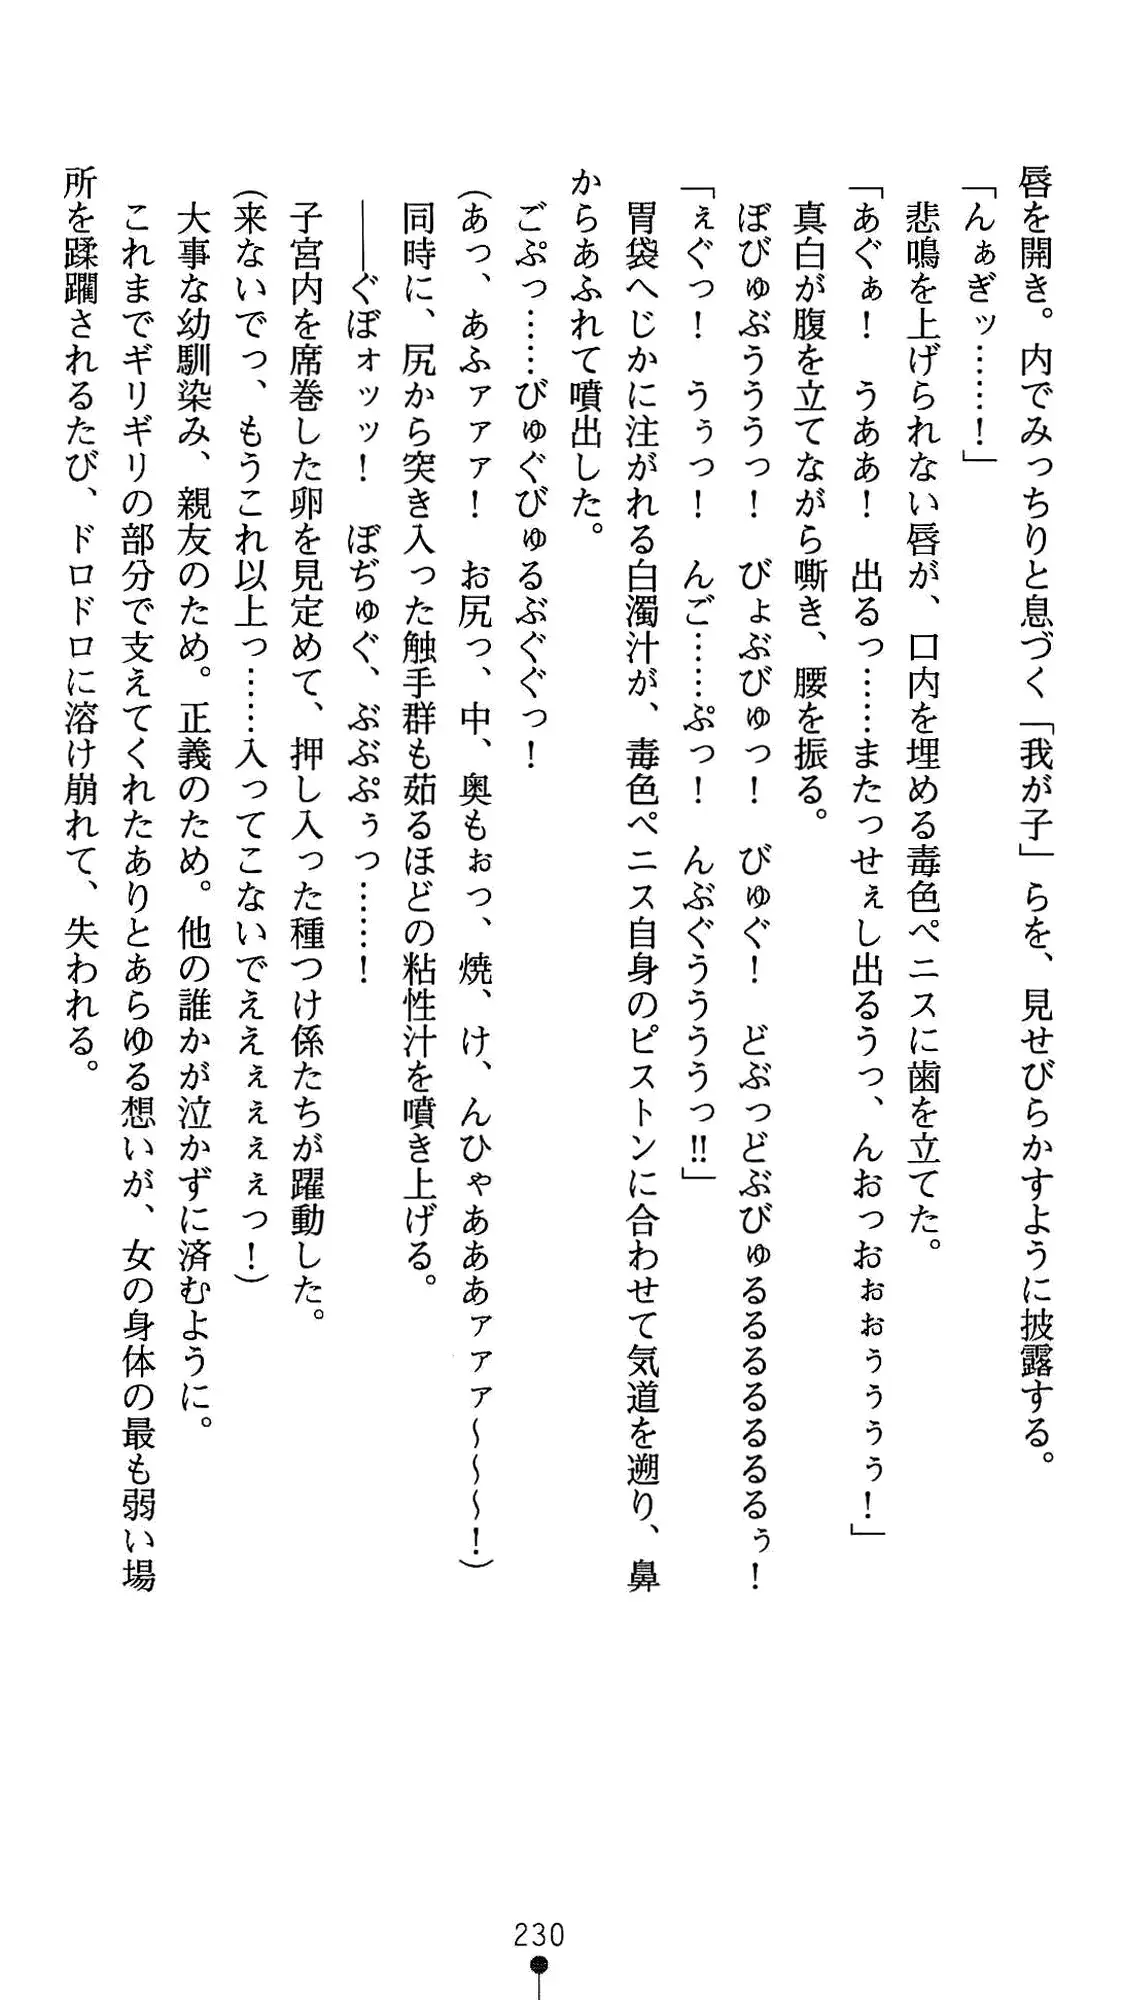 唇を開き。内でみっちりと息づく「我が子」らを、見せびらかすように披露する。
「んぁぎッ……！」
悲鳴を上げられない唇が、口内を埋める毒色ペニスに歯を立てた。
「あぐぁ！　うああ！　出るっ……またっせぇし出るうっ、んおっおぉぉぅぅぅぅ！」
真白が腹を立てながら嘶き、腰を振る。
ぼびゅぶうううっ！　びょぶびゅっ！　びゅぐ！　どぶっどぶびゅるるるるるるるぅ！
「ぇぐっ！　うぅっ！　んご……ぷっ！　んぶぐううううっ‼」
胃袋へじかに注がれる白濁汁が、毒色ペニス自身のピストンに合わせて気道を遡り、鼻
からあふれて噴出した。
ごぷっ……びゅぐびゅるぶぐぐっ！
（あっ、あふァァァ！　お尻っ、中、奥もぉっ、焼、け、んひゃあああァァァ～～～！）
同時に、尻から突き入った触手群も茹るほどの粘性汁を噴き上げる。
――ぐぼォッッ！　ぼぢゅぐ、ぶぶぷぅっ……！
子宮内を席巻した卵を見定めて、押し入った種つけ係たちが躍動した。
（来ないでっ、もうこれ以上っ……入ってこないでええぇぇぇぇっ！）
大事な幼馴染み、親友のため。正義のため。他の誰かが泣かずに済むように。
これまでギリギリの部分で支えてくれたありとあらゆる想いが、女の身体の最も弱い場
所を蹂躙されるたび、ドロドロに溶け崩れて、失われる。
230